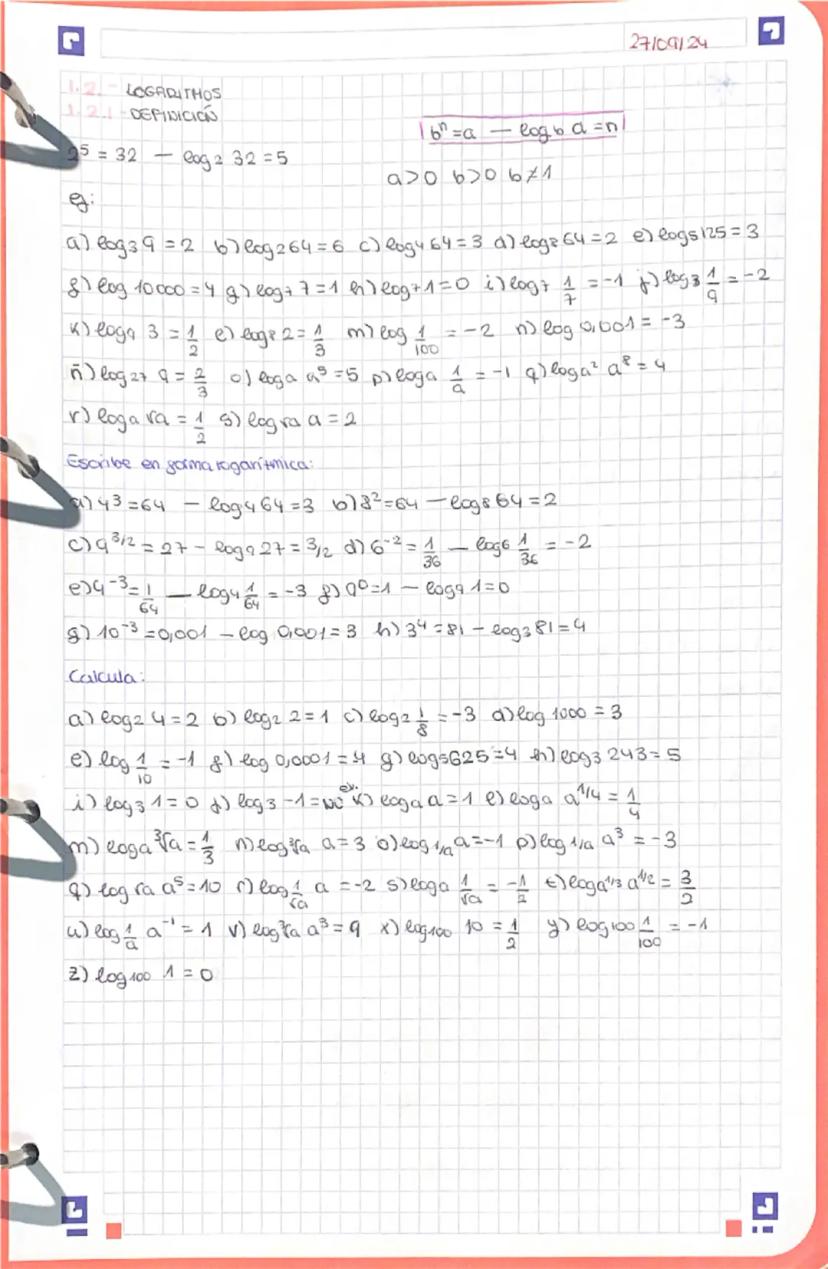 27/09/24
1.2.- LOGARITMOS
1.2.1- DEFINICIÓN
bⁿ=a — log_b a=n
2⁵ = 32 — log₂ 32=5
a>0 b>0 b≠1
ej:
a) log₃ 9 = 2 b) log₂ 64=6 c) log₄ 64=3 d) log₈ 64=2 e) log₅ 125=3
f) log 10000=4 g) log₇ 7=1 h) log₇ 1=0 i) log₇ 1/7 = -1 j) log₃ 1/9 = -2
k) log₉ 3 = 1/2 l) log₈ 2= 1/3 m) log 1/100 = -2 n) log 0,001= -3
ñ) log₂₇ 9 = 2/3 o) log_a a⁵=5 p) log_a 1/a = -1 q) log_a² a⁸=4
r) log_a √a = 1/2 s) log_√a a=2
Escribe en forma logarítmica:
a) 4³=64 - log₄ 64=3 b) 8²=64 - log₈ 64=2
c) 9^3/2 = 27 - log₉ 27= 3/2 d) 6⁻²= 1/36 - log₆ 1/36 = -2
e) 4⁻³= 1/64 - log₄ 1/64 = -3 f) 9⁰=1 - log₉ 1=0
g) 10⁻³=0,001 - log 0,001=3 h) 3⁴=81 - log₃ 81=4
Calcula:
a) log₂ 4=2 b) log₂ 2=1 c) log₂ 1/8 = -3 d) log 1000=3
e) log 1/10 = -1 f) log 0,0001=4 g) log₅ 625=4 h) log₃ 243=5
i) log₃ 1=0 j) log₃ -1=no ex. k) log_a a=1 l) log_a a^1/4 = 1/4
m) log_a ³√a= 1/3 n) log_³√a a=3 o) log_1/a a=-1 p) log_1/a a³ = -3
q) log_√a a⁵=10 r) log_1/√a a = -2 s) log_a 1/√a = -1/2 t) log_a^1/3 a^1/2 = 3/2
u) log_1/a a⁻¹ = 1 v) log_³√a a³=9 x) log₁₀₀ 10 = 1/2 y) log₁₀₀ 1/100 = -1
z) log₁₀₀ 1=0